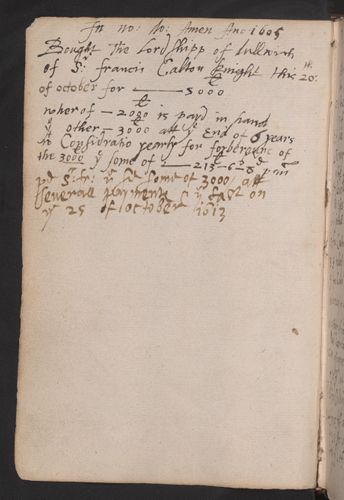 In no: do: Amen Ano 1605
Bought the Lordshipp of Dullwich
of Sr francis Calton knight this 20th
of october for —— 5000 li
wherof — 2000 li is payd in hand
ye other — 3000 att ye End of 6 years
In Consideratio yearly for forberanc of
the 3000 li ye some of —— 213-6-8d
pd Sr fr: ye some of 3000 att
severall payments ye last on
ye 25 of october 1613